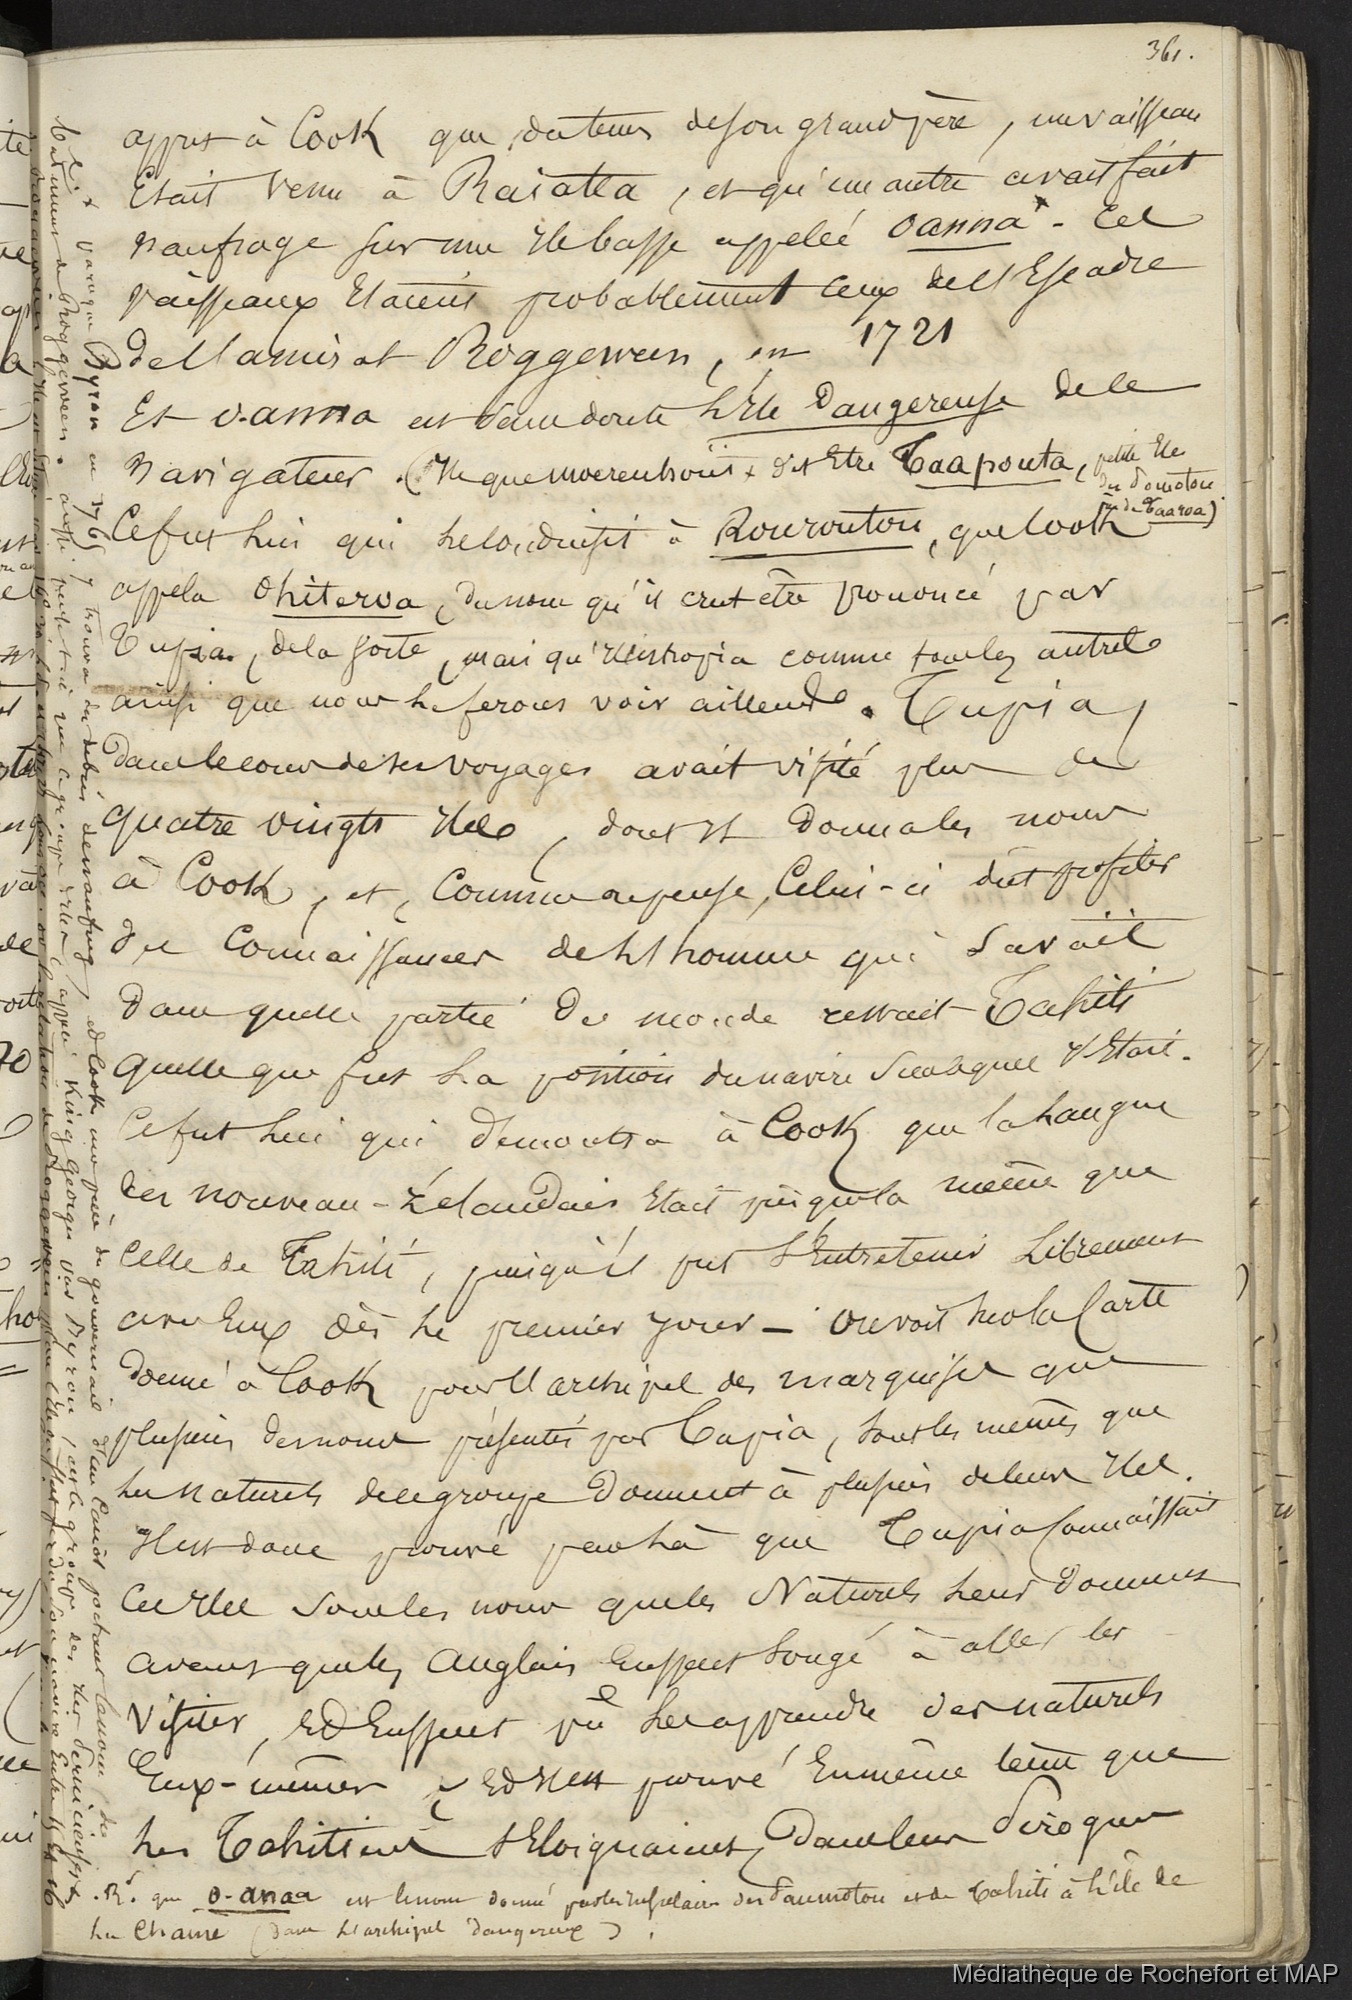 361.
apprit à Cook que, du tems de son grand père, un vaisseau
Etait venu à Raiatea, et qu'un autre avait fait
naufrage sur une Ile basse appelée oanna x - Ces
vaisseaux Etaient probablement ceux de l'Escadre
de l'amiral Roggeween, en 1721
Et o-anna est sans doute l'Ile Dangereuse de ce
navigateur. (Ile que moerenhout dit Etre Taapouta, petite Ile
du Pomotou
de Taaroa)
Ce fut lui qui le conduisit à Rouroutou, que Cook
appela Ohiteroa, du nom qu'il crut être prononcé par
Tupia, de la sorte, mais qu'il estropia comme tous les autres
ainsi que nous le ferons voir ailleurs. Tupia,
dans le cours de ses voyages avait visité plus de
quatre vingts Iles, dont il donna les noms
à Cook, et, comme on pense, Celui-ci dut profiter
des connaissances de cet homme qui savait
dans quelle partie du monde restait Tahiti
quelle que fut la position du navire sur lequel il Etait.
Ce fut lui qui démontra à Cook que la langue
des nouveau-Zélandais Etait presque la même que
celle de Tahiti, puisqu'il put s'Entretenir librement
avec Eux dès le premier jour - On voit sur la Carte
donné à Cook pour l'archipel des marquises que
plusieurs des noms présentés par Tupia, sont les mêmes que
les naturels de ce groupe donnent à plusieurs de leurs Iles.
Il est donc prouvé par là que Tupia connaissait
ces Iles sous les noms que les Naturels leur donnent
avant que les Anglais Eussent songé à aller les
visiter, Et Eussent pû les apprendre des naturels
Eux-mêmes, Et il est prouvé En même tems que
les Tahitiens s'Eloignaient, dans leurs Pirogues
. R. que o-anaa est le nom donné par les Insulaires des Paumotou et de Tahiti à l'île de
la Chaine (dans l'archipel dangereux).
x Byron en 1765, y trouva des débris de naufrage, et Cook une pièce du gouvernail d'un Canot portant le nom des
bâtiment de Roggeween. aussi peut-il que ce groupe (appelé King Georges par Byron) est le groupe des Iles Pernicieuses